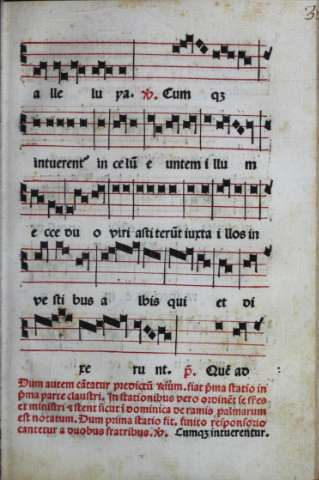 3
a lle lu ya. ℣. Cum qꝫ
intuerentᷣ in celū e untem i llu m
e cce du o viri astiterūt iuxta i llos in
ve sti bus a lbis qui et di
xe ru nt. ꝓ. Quē ad
Dum autem cātatur predictū ℣sum. fiat pͥma statio in
pͥma parte claustri. In stationibus vero ordinēt se fr̄es
et ministri ⁊ stent sicut i dominica de ramis palmarum
est notatum. Dum prima statio fit. finito responsorio
cantetur a duobus fratribus. ℣. Cumqꝫ intuerentur.